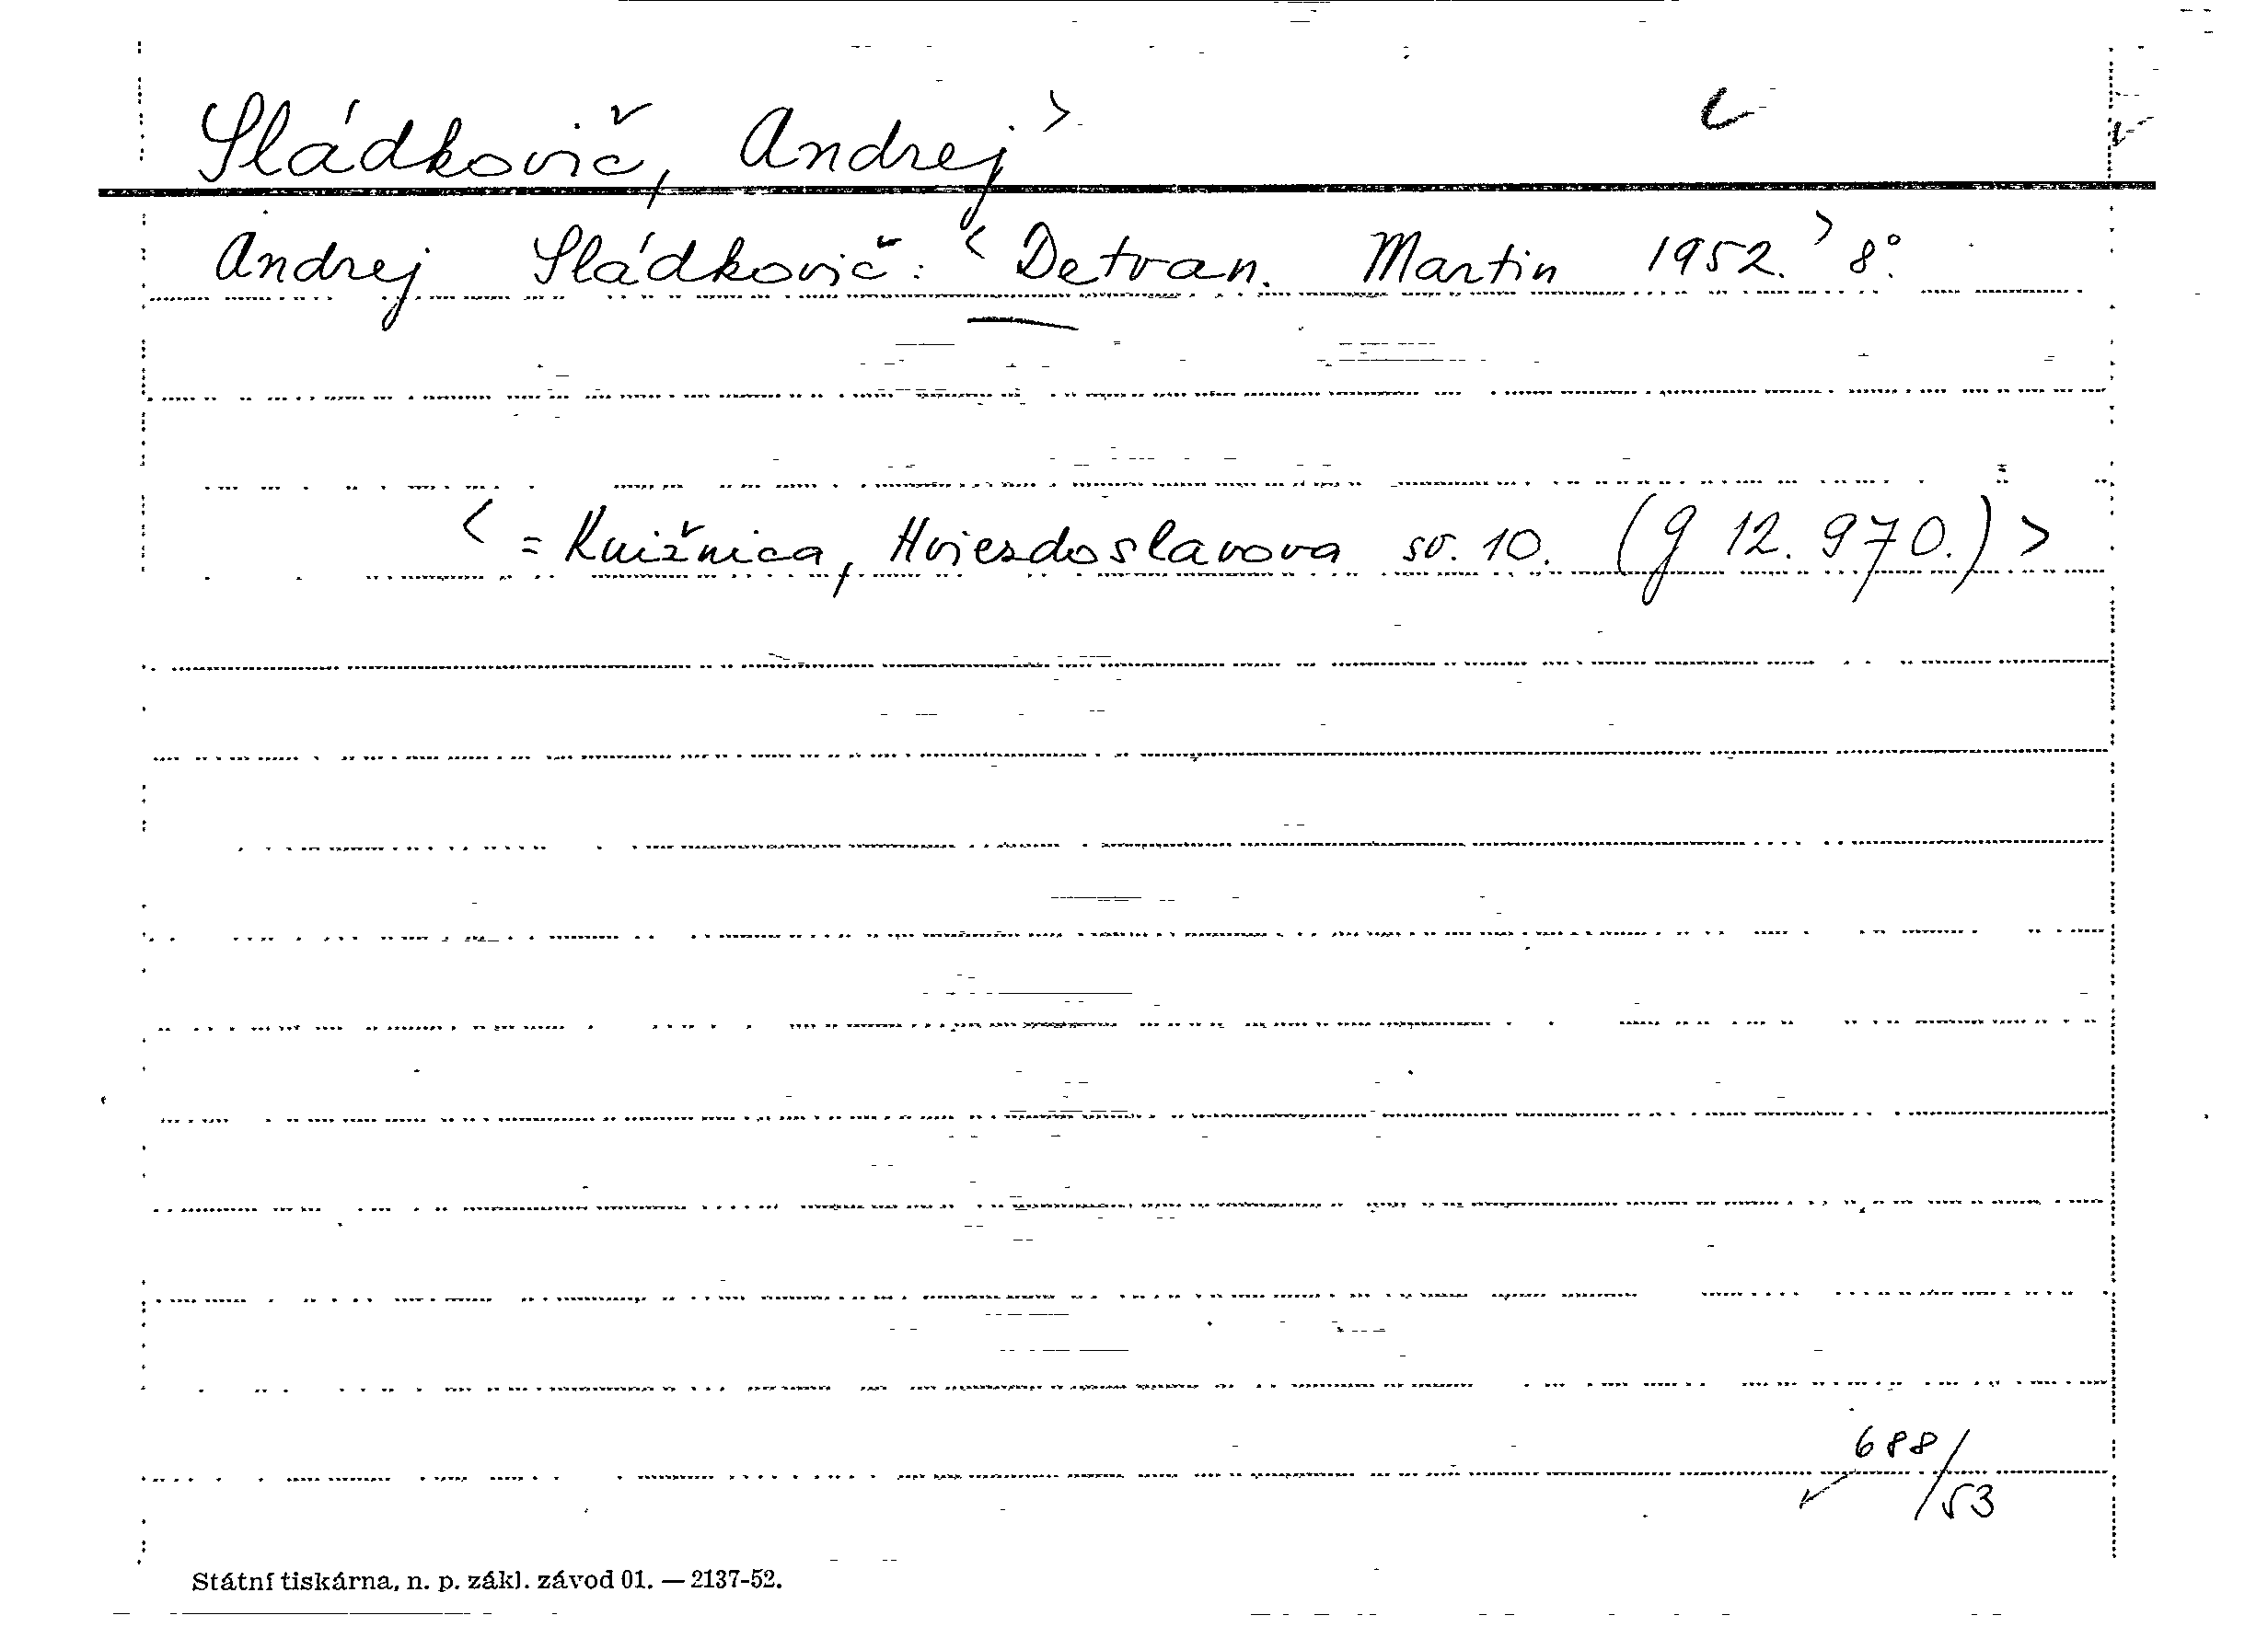 Sládkovič, Andrej >
Andrej Sládkovič: < Detvan. Martin 1952. > 8°.
< = Knižnica, Hviezdoslavova sv. 10. (g 12.970.) >
688/53
Státní tiskárna, n. p. zákl. závod 01. — 2137-52.